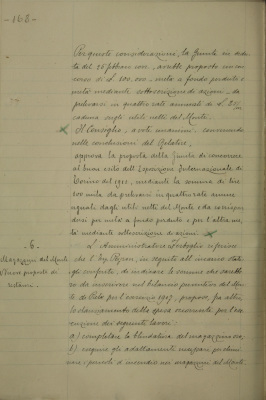 - 163 -
Per queste considerazioni, la Giunta in sedu-
ta del 25 febbraio corr., avrebbe proposto un con-
corso di L. 200,000 - metà a fondo perduto e
metà mediante sottoscrizione di azioni - da
prelevarsi in quattro rate annuali di L.
caduna sugli utili netti del Monte.
Il Consiglio, a voti unanimi, convenendo
nelle conclusioni del Relatore,
approva la proposta della Giunta di concorrere
al buon esito dell'Esposizione Internazionale di
Torino del 1911, mediante la somma di lire
200 mila, da prelevarsi in quattro rate annue
uguali dagli utili netti del Monte e da corrispon-
dersi per metà a fondo perduto e per l'altra me-
tà mediante sottoscrizione di azioni.
- 6 -
Magazzini del Monte
L'Amministratore
che l'Ing.
in seguito all'incarico
di indicare le somme che
da inserirsi nel bilancio preventivo del Monte
di Pietà per l'esercizio 1907, propose, fra altro,
lo stanziamento della spesa occorrente per l'ese-
cuzione dei seguenti lavori:
a) completare la blindatura del magazzino
b) eseguire gli adattamenti necessari per elimi-
nare i pericoli d'incendio nei magazzini del Monte